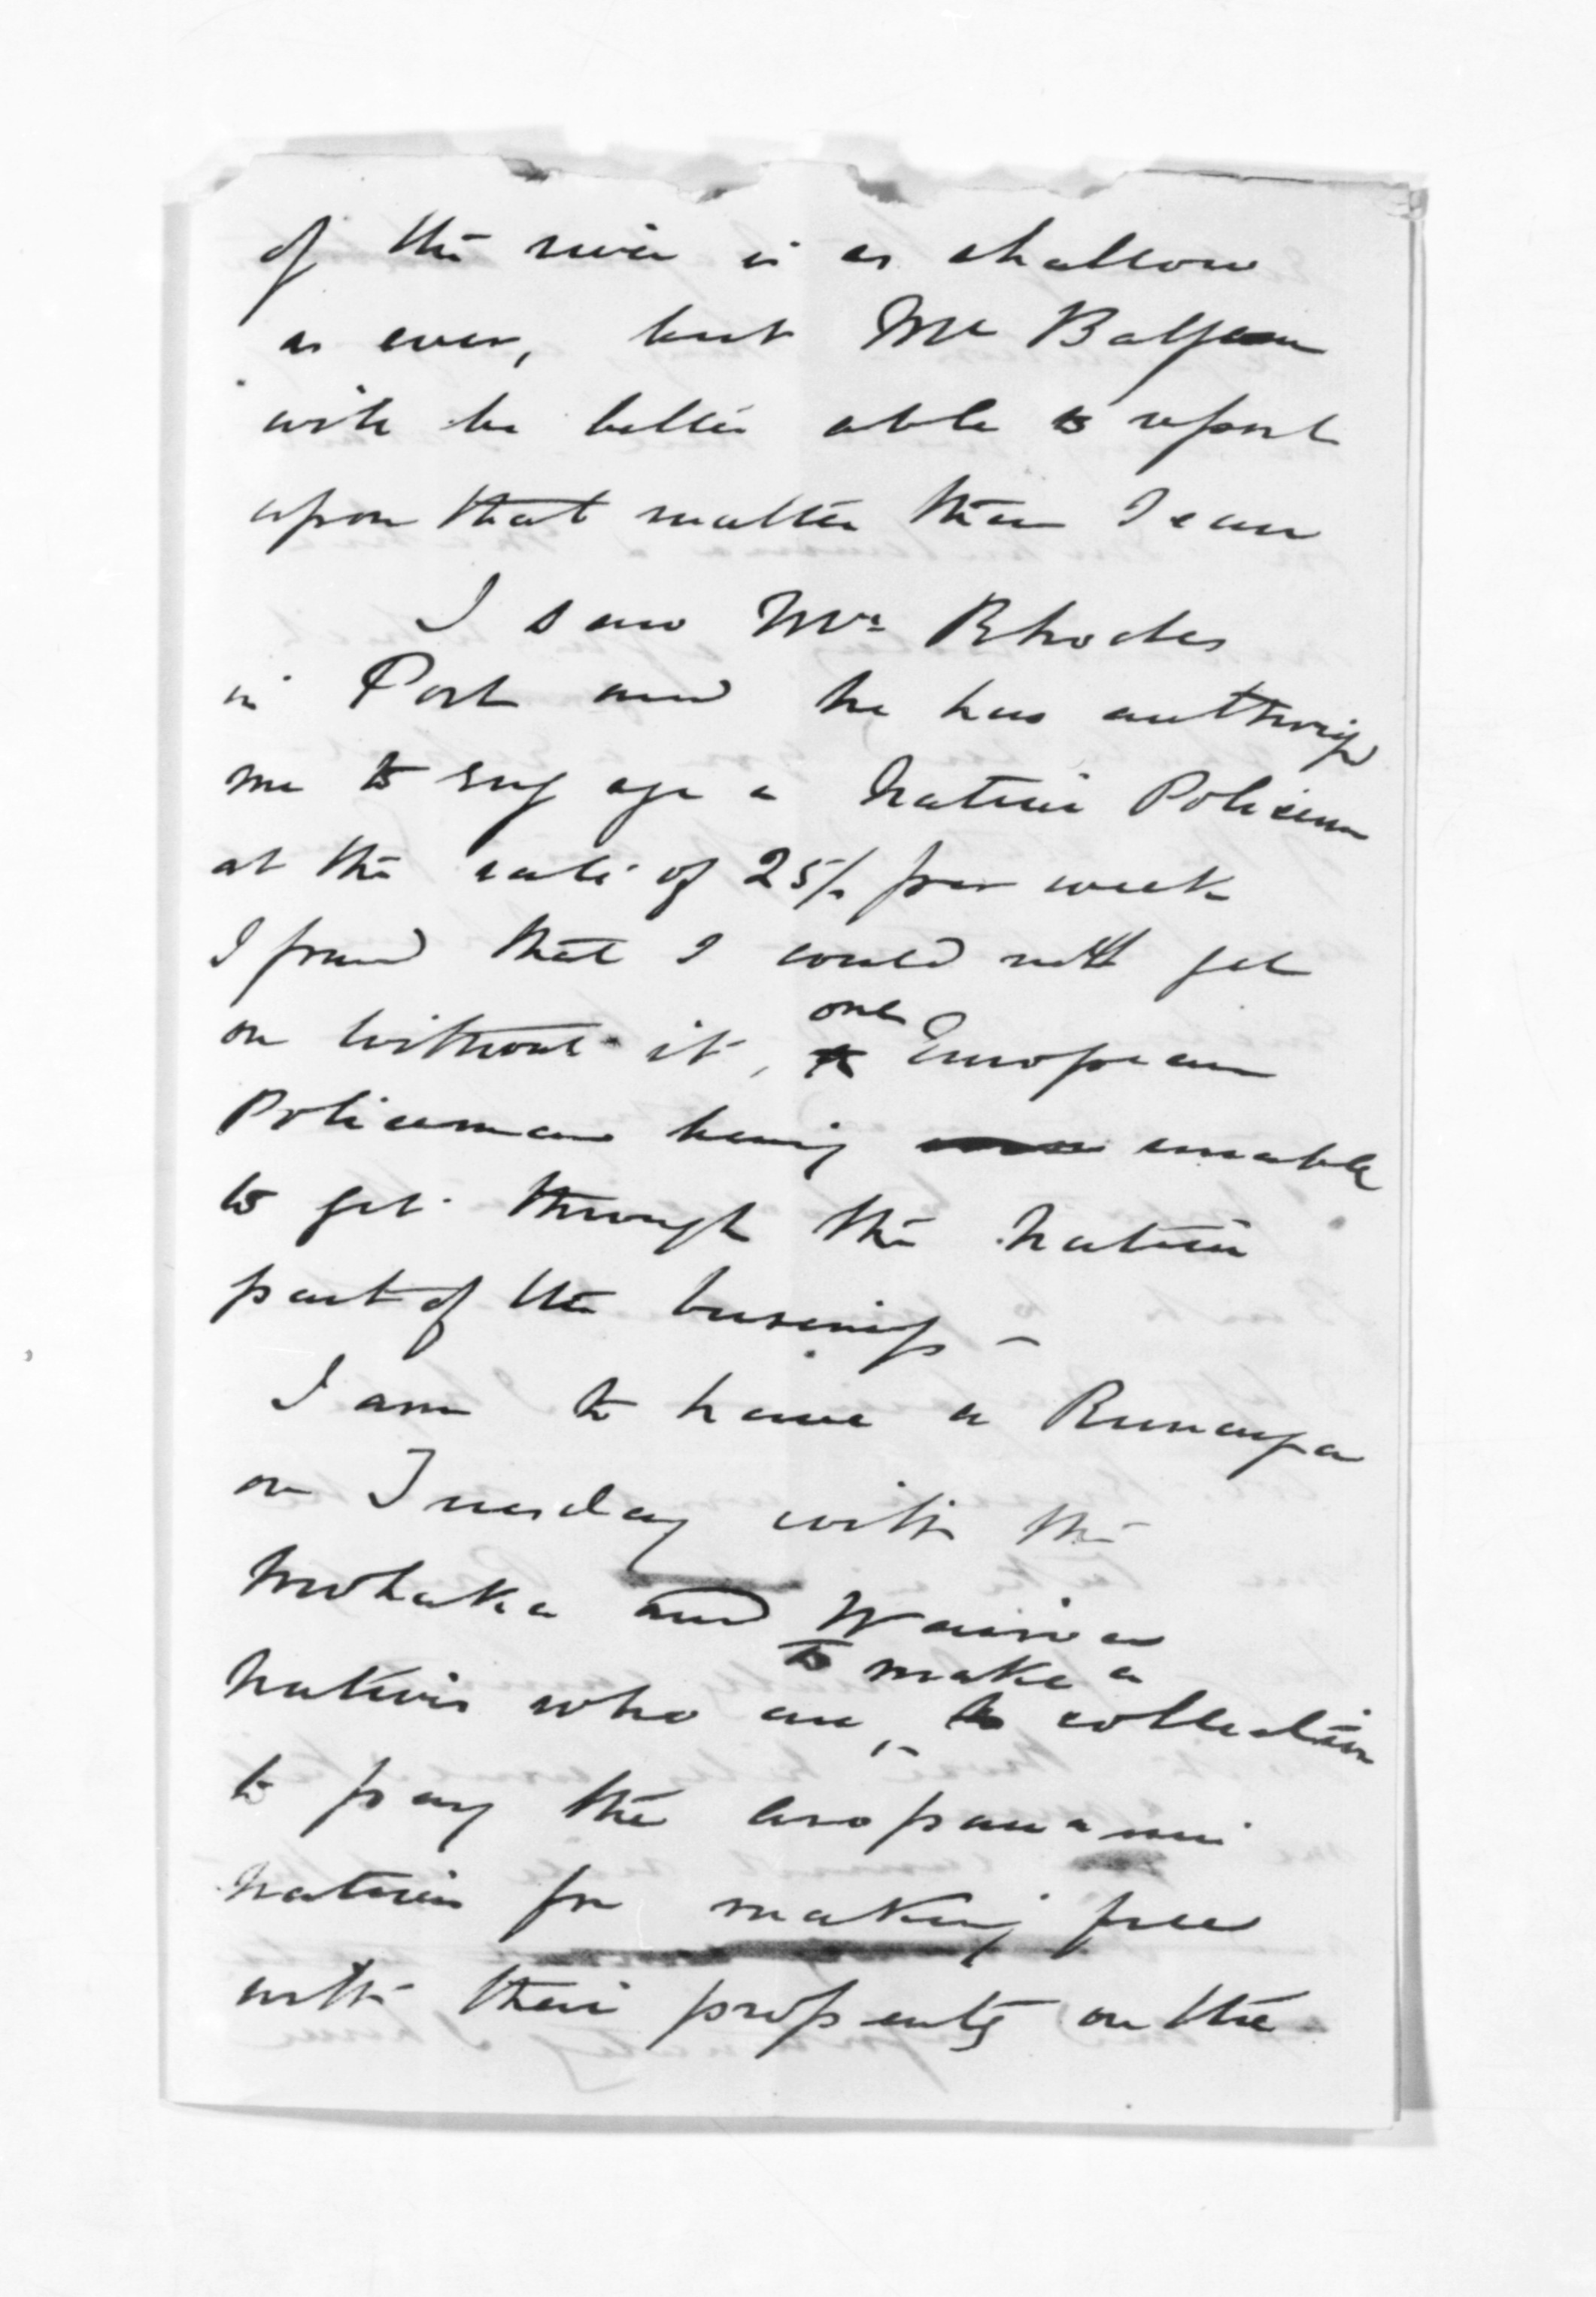 of the river is as shallow
as ever, but Mr Balfour
will be better able to report
upon that matter than I can
I saw Mr Rhodes
in Port and he has authorised
me to engage a Native Policeman
at the rate of 25/- per week
I found that I could not get
on without it, one European
Policeman being unable
to get through the Native
part of the business -
I am to have a Runanga
on Tuesday with the
Mohaka and Wairoa
to make a
Natives who are, collection
to pay the Aropauanui
natives for making free
with their property on the